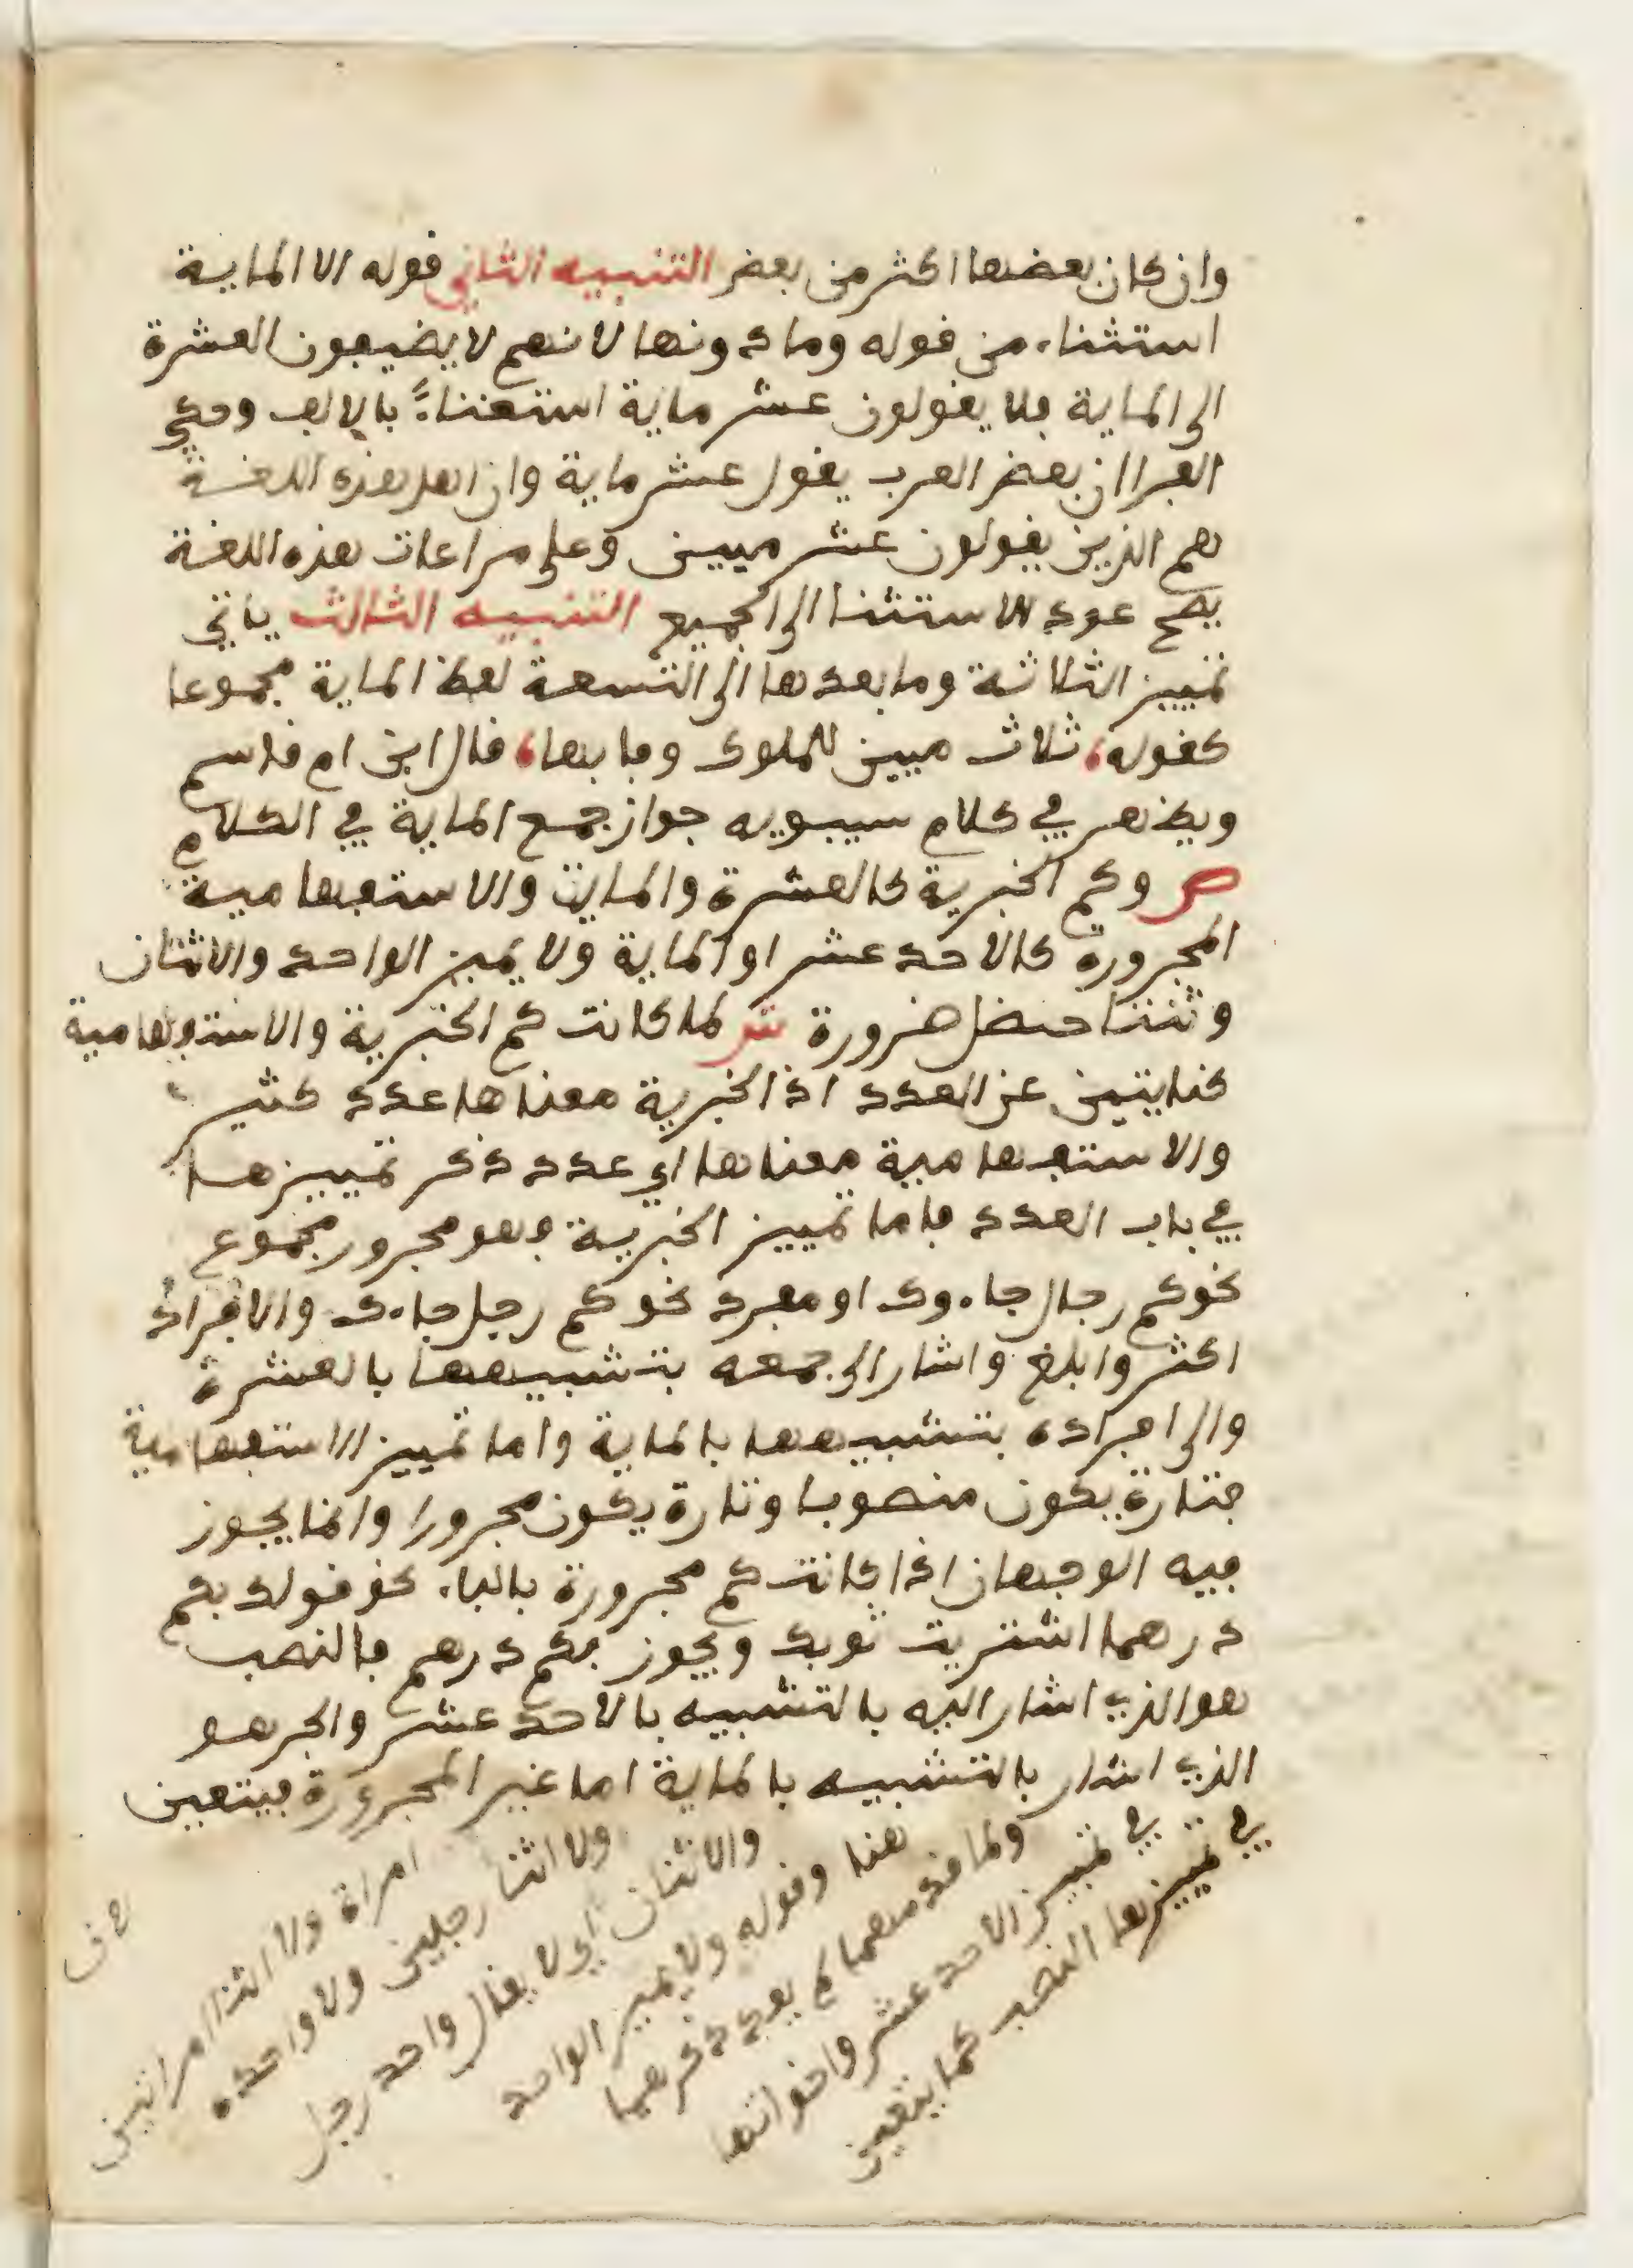 وان كان بعضها اكثر من بعض التنبيه الثاني قوله الا الماية
استثناء من قوله وما دونها لانهم لا يضيفون العشرة
الى الماية فلا يقولون عشر ماية استغناءً بالالف وحكي
الفرا ان بعض العرب يقول عشر ماية وان اهل هذه اللغة
هم الذين يقولون عشر ميين وعلى مراعات هذه اللغة
يصح عود الاستثنا الى الجميع التنبيه الثالث ياتي
تمييز الثلاثة وما بعدها الى التسعة لفظ الماية مجموعا
كقوله، ثلاث ميين للملوك وفا بها، قال ابن ام قاسم
ويظهر في كلام سيبويه جواز جمع الماية في الكلام
ص وكم الخبرية كالعشرة والماية والاستفهامية
المجرورة كالاحد عشر او الماية ولا يميز الواحد والاثنان
وثنتا حنضل ضرورة ش لما كانت كم الخبرية والاستفهامية
كنايتين عن العدد اذ الخبرية معناها عدد كثير
والاستفهامية معناها اي عدد ذكر تمييزها
في باب العدد فاما تمييز الخبرية فهو مجرور مجموع
نحو كم رجال جاءوك او مفرد نحو كم رجل جاءك والافراد
اكثر وابلغ واشار الى جمعه بتشبيهها بالعشرة
والى افراده بتشبيهها بالماية واما تمييز الاستفهامية
فتارة يكون منصوبا وتارة يكون مجرورا وانما يجوز
فيه الوجهان اذا كانت كم مجرورة بالباء نحو قولك بكم
درهما اشتريت ثوبك ويجوز بكم درهم فالنصب
هو الذي اشار اليه بالتشبيه بالاحد عشر والجر هو
الذي اشار بالتشبيه بالماية اما غير المجرورة فيتعين
في تمييزها النصب كما يتعين
في تمييز الاحد عشر واخواتها
ولما قدمهما لم يعد ذكرهما
هنا وقوله ولا يميز الواحد
والاثنان اي لا يقال واحد رجل
ولا اثنا رجلين ولا واحدة
امراة ولا اثنتا امراتين